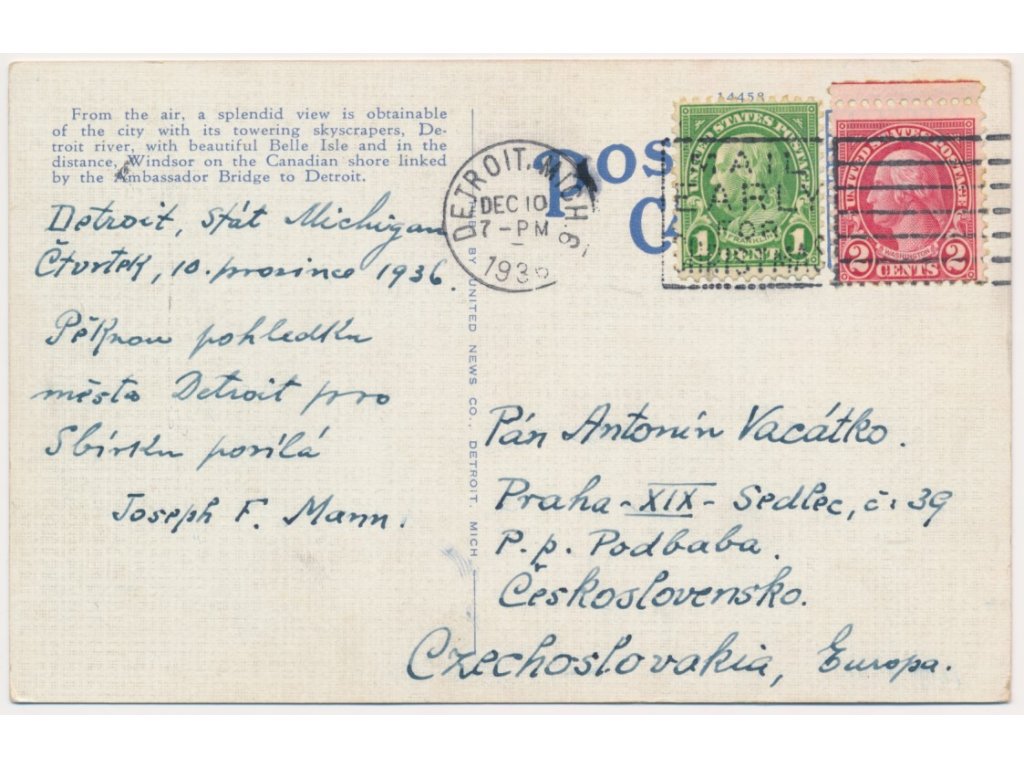 From the air, a splendid view is obtainable
of the city with its towering skyscrapers, De-
troit river, with beautiful Belle Isle and in the
distance, Windsor on the Canadian shore linked
by the Ambassador Bridge to Detroit.
Detroit, stát Michigan
Čtvrtek, 10. prosince 1936.
Pěknou pohledku
města Detroit pro
Sbírku posílá
Joseph F. Mann.
BY UNITED NEWS CO., DETROIT, MICH
14458
POS
C
DETROIT, MICH. 9
DEC 10
7-PM
1936
MAIL
EARLY
FOR
UNITED STATES POSTAGE
FRANKLIN
1 CENT 1
UNITED STATES POSTAGE
WASHINGTON
2 CENTS 2
Pán Antonín Vacátko.
Praha-XIX-Sedlec, č: 39
P. p. Podbaba.
Československo.
Czechoslovakia, Europa.